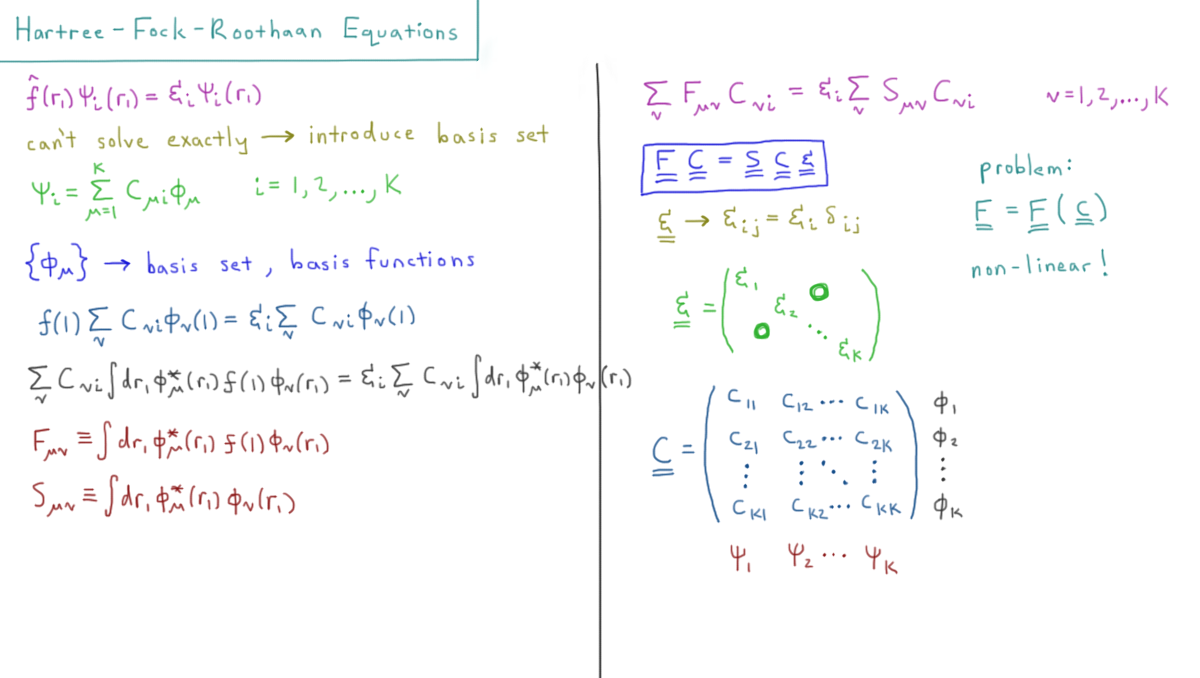 Hartree-Fock-Roothaan Equations
f̂(r₁)Ψᵢ(r₁) = Ɛᵢ Ψᵢ(r₁)
can't solve exactly → introduce basis set
Ψᵢ = Σ_{μ=1}^{K} C_{μi} ϕ_μ    i = 1, 2, ..., K
{ϕ_μ} → basis set, basis functions
f(1) Σ_ν C_{νi} ϕ_ν(1) = Ɛᵢ Σ_ν C_{νi} ϕ_ν(1)
Σ_ν C_{νi} ∫dr₁ ϕ_μ*(r₁) f(1) ϕ_ν(r₁) = Ɛᵢ Σ_ν C_{νi} ∫dr₁ ϕ_μ*(r₁) ϕ_ν(r₁)
F_{μν} ≡ ∫dr₁ ϕ_μ*(r₁) f(1) ϕ_ν(r₁)
S_{μν} ≡ ∫dr₁ ϕ_μ*(r₁) ϕ_ν(r₁)
Σ_ν F_{μν} C_{νi} = Ɛᵢ Σ_ν S_{μν} C_{νi}    ν = 1, 2, ..., K
F C = S C Ɛ
Ɛ → Ɛ_{ij} = Ɛᵢ δ_{ij}
problem:
F = F(C)
non-linear!
Ɛ = ( Ɛ₁ Ɛ₂ ⋱ Ɛ_K ) 0 0
C = ( C₁₁ C₁₂ ⋯ C_{1K} ) ϕ₁
C₂₁ C₂₂ ⋯ C_{2K} ϕ₂
⋮ ⋮ ⋱ ⋮ ⋮
C_{K1} C_{K2} ⋯ C_{KK} ϕ_K
Ψ₁ Ψ₂ ⋯ Ψ_K